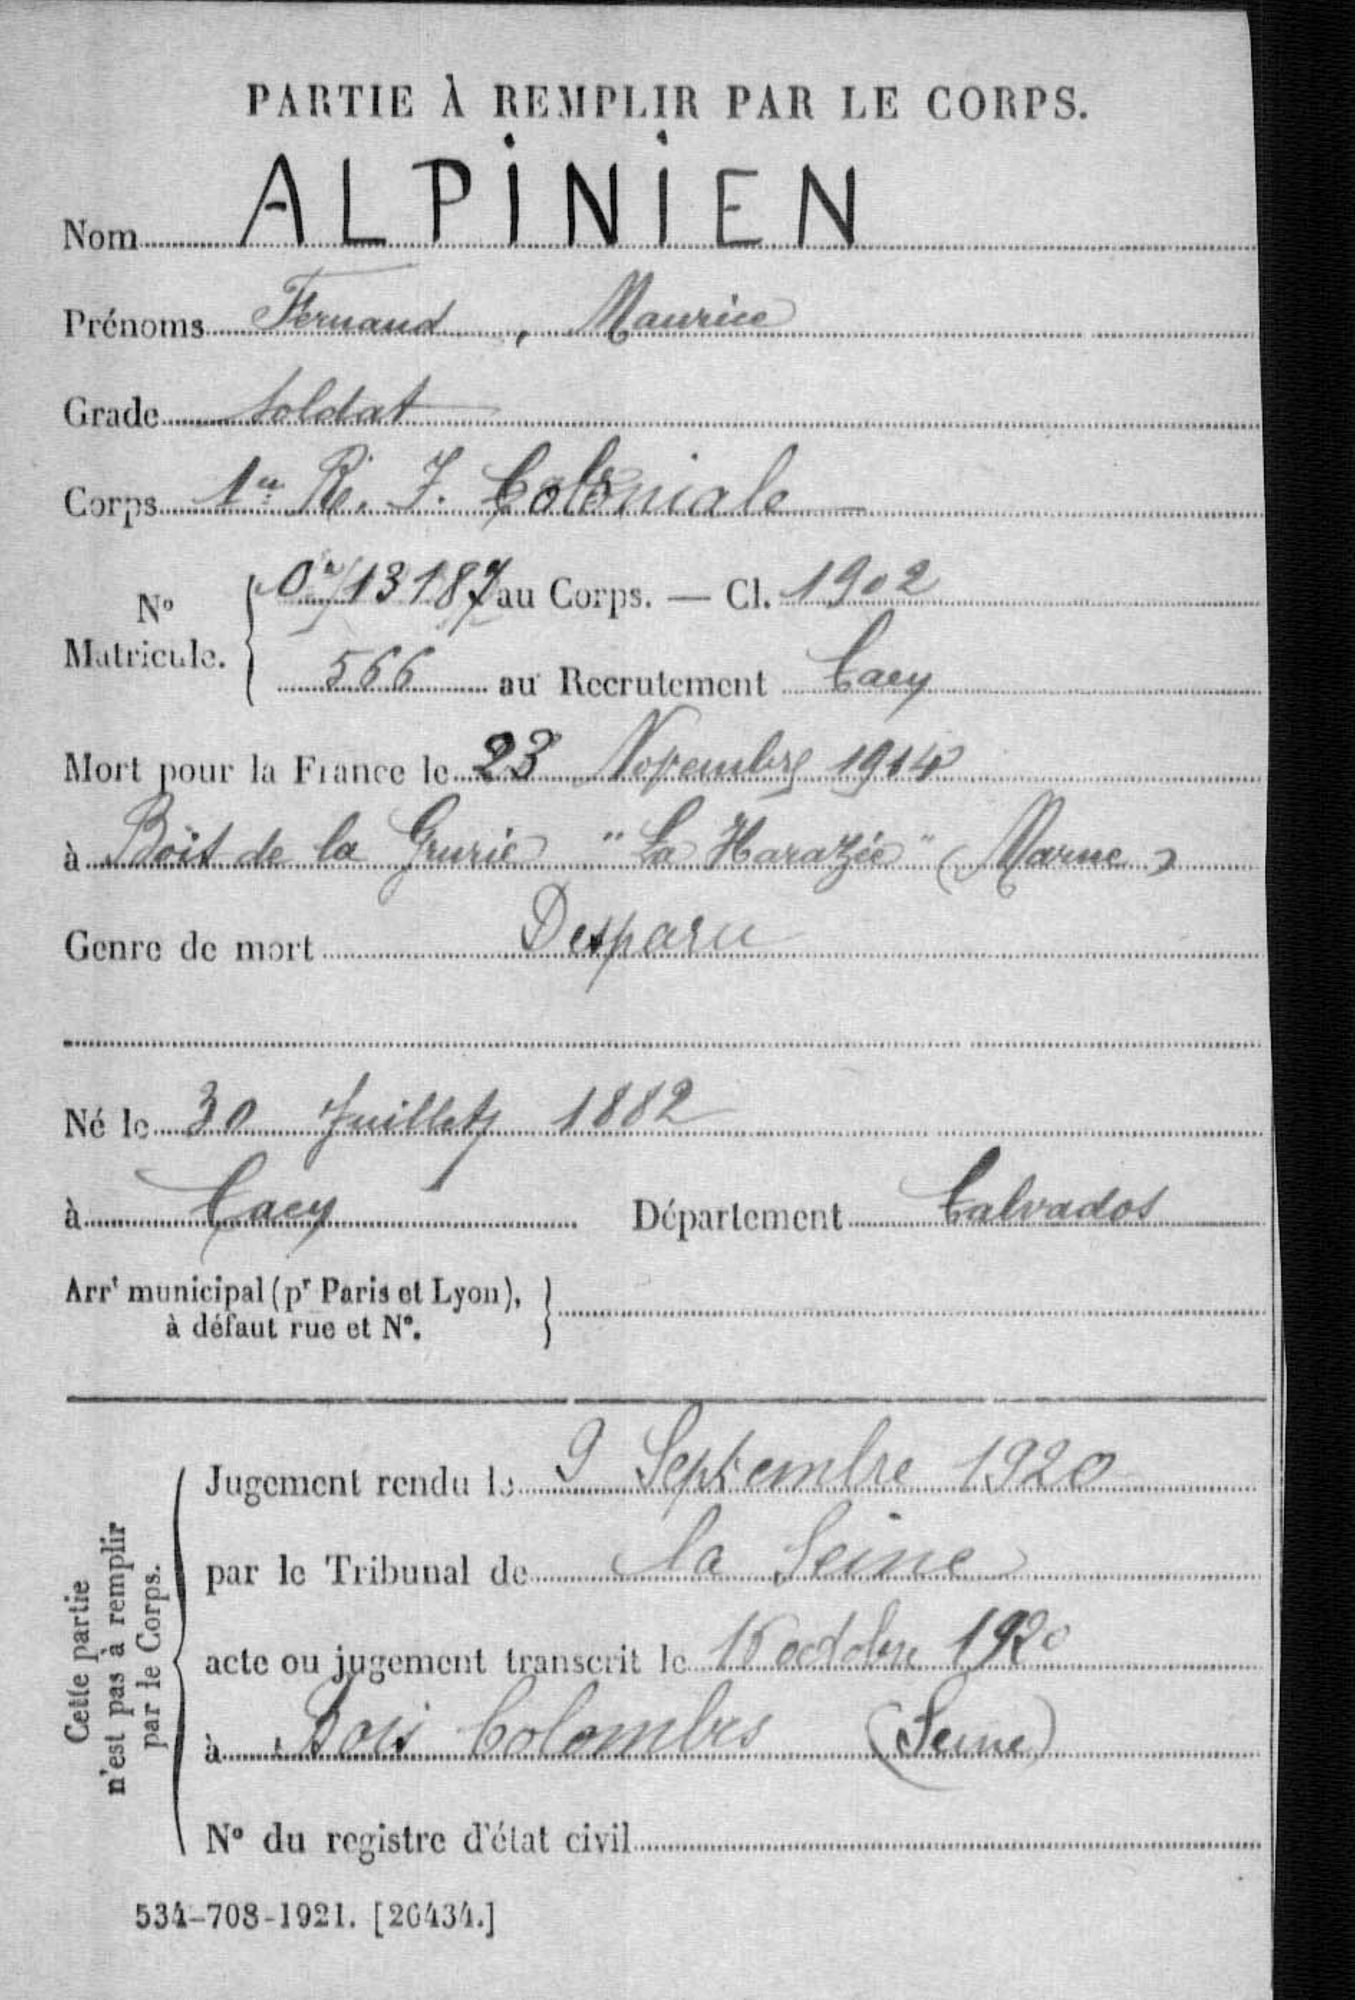 PARTIE À REMPLIR PAR LE CORPS.
Nom ALPINIEN
Prénoms Fernand, Maurice
Grade Soldat
Corps 1er Ré. I. Coloniale
N° Matricule. 13187 au Corps. — Cl. 1902
566 au Recrutement Caen
Mort pour la France le 23 Novembre 1914
à Bois de la Grurie "La Harazée" (Marne)
Genre de mort Disparu
Né le 30 Juillet 1882
à Caen Département Calvados
Arrt municipal (pr Paris et Lyon),
à défaut rue et N°.
Cette partie
n'est pas à remplir
par le Corps.
Jugement rendu le 9 Septembre 1920
par le Tribunal de la Seine
acte ou jugement transcrit le 15 octobre 1920
à Bois Colombes (Seine)
N° du registre d'état civil
534-708-1921. [26434.]